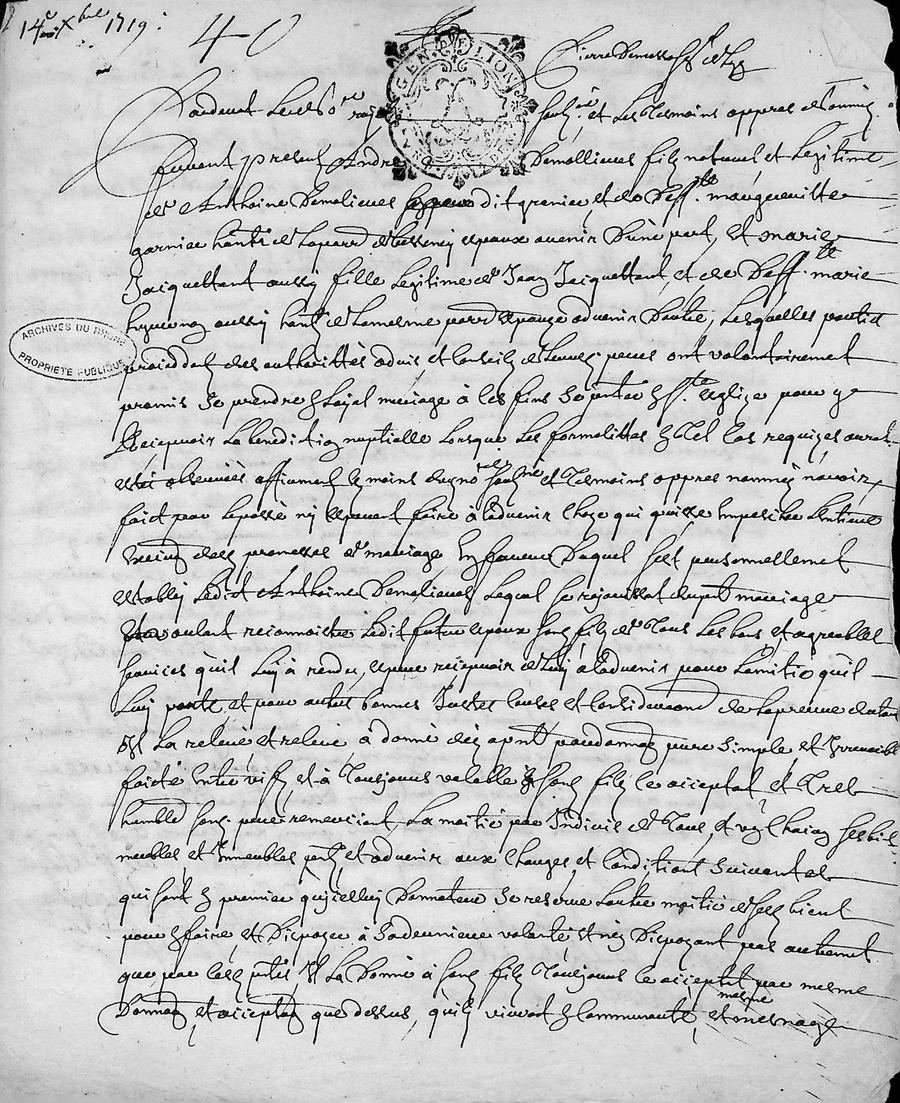 14e Xbre 1719:
40
GEN. DE LION
ARCHIVES DU RHONE
PROPRIETE PUBLIQUE
Pardevant le No.re royal soubz.né et les tesmoins appres nommés
furent present André Demollieres filz naturel et legitime
de Anthoine Demolieres dit grenier, et de deff.te margueritte
garnier hants de la parr. de bessenay espoux avenir d'une part, et marie
Jacquettant aussy fille legitime de Jean Jacquettant, et de deff.te marie
aussy hants de la mesme parr. espouze advenir d'autre, lesquelles parties
procedant des authorittés advis et conseilz de leurs peres ont volontairement
promis se prendre en loyal mariage à ces fins se pnter en s.te esglize pour y
recepvoir la benediction nuptielle lorsque les formalittes en tel cas requizes auront
estés observées affirment es mains du no.re soubz.né et tesmoins appres nommés n'avoir
faict par le passé ny espèrent faire à l'advenir choze qui puisse empescher l'entiere
des promesses de mariage en faveur duquel s'est personnellement
estably ledit Anthoine Demolieres lequel se rejouissant du pnt mariage
voulant reconnoistre ledit futur espoux son filz de tous les bons et agreables
services qu'il luy à rendu, espere recepvoir de luy à l'advenir pour l'amitié qu'il
luy porte, et pour autres bonnes justes causes et considerations de la preuve desquelles
il l'a relevé et releve, à donné par donnation pure simple et irrevocable
faicte entre vifz et à toujours valable à son filz ce acceptant et tres
humble son pere remerciant, la moitié par indivis de tous et ungz chacuns ses biens
meubles et immeubles pntz et advenir aux charges et conditions suivantes
qui sont en premier qu'icelluy donnateur se reserve l'autre moitié de ses biens
pour en faire, et disposer à sa derniere volonté et n'en dispozant pas autrement
que par ces pntes, il l'a donné à son filz toujours ce acceptant par mesme
donnation et acceptation que dessus, qu'ilz vivront en communauté, et mesme mesnage